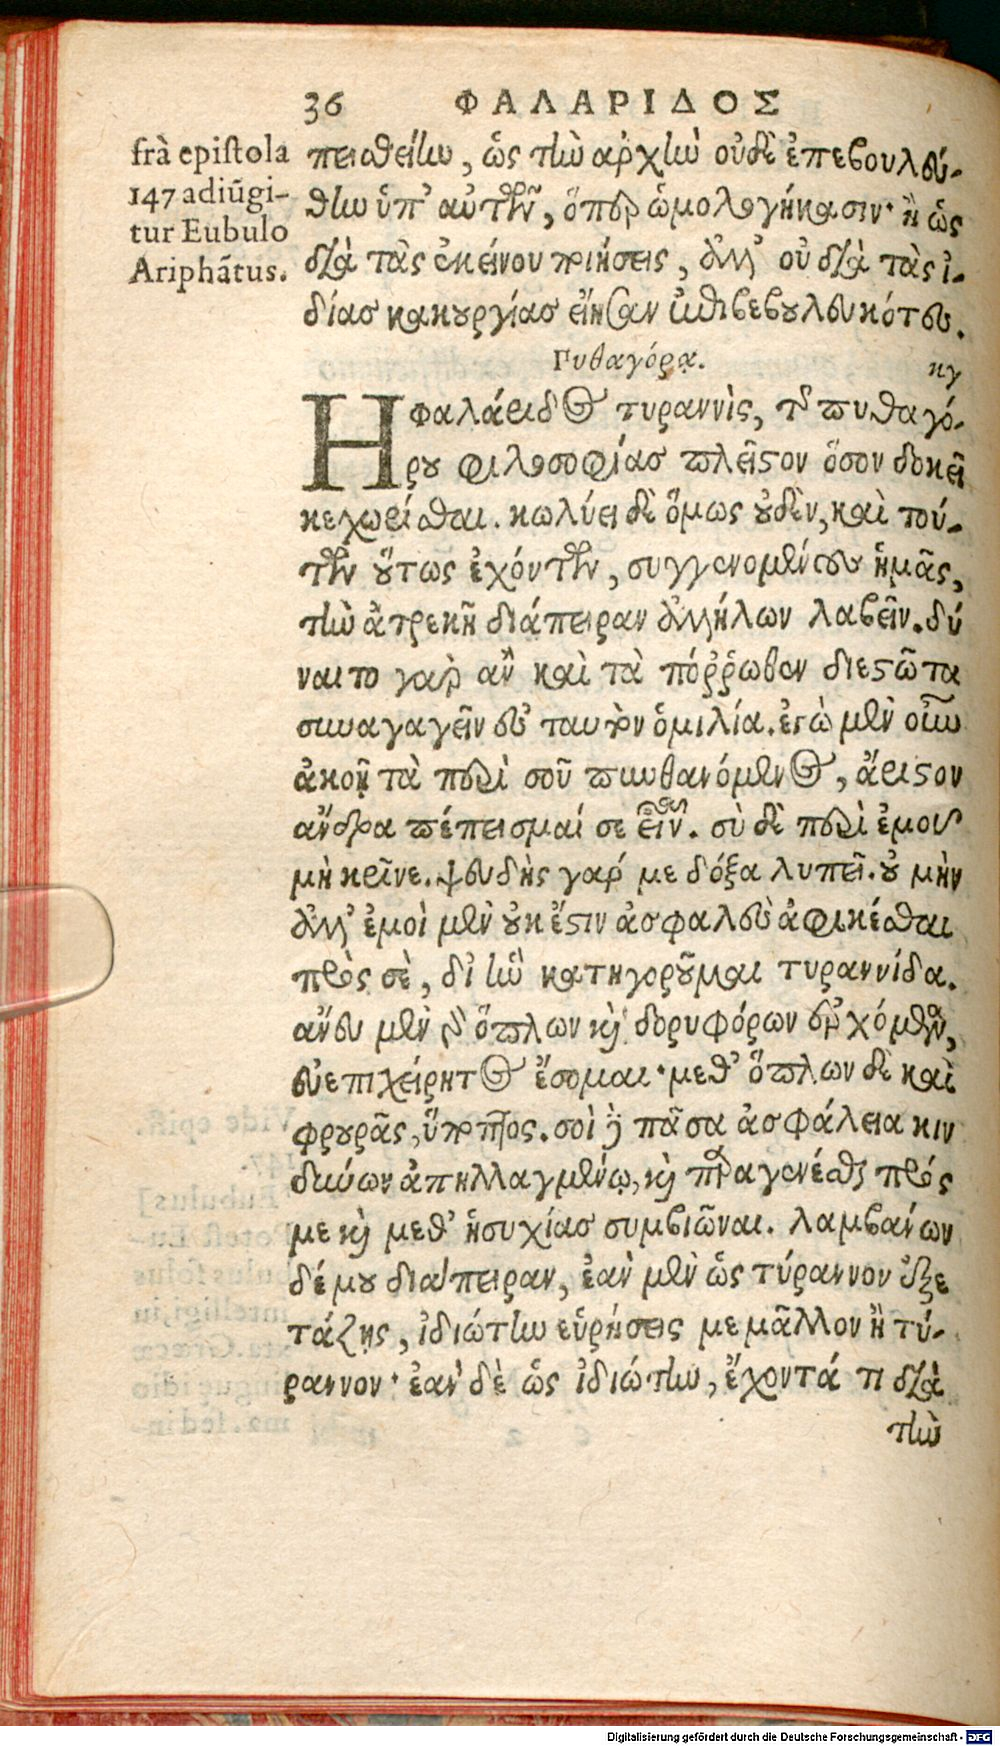 36 ΦΑΛΑΡΙΔΟΣ
frà epistola
147 adiūgi-
tur Eubulo
Ariphātus.
πεισθείην, ὡς τὴν ἀρχὴν οὐδὲ ἐπεβουλεύ-
θην ὑπ' αὐτῶν, ὅπερ ὡμολογήκασιν· ἢ ὡς
διὰ τὰς ἐκείνου ποιήσεις, ἀλλ' οὐ διὰ τὰς ἰ-
δίας κακουργίας εἴησαν ἐπιβεβουλευκότες.
Πυθαγόρᾳ. κγ
Η φαλάριδος τυραννὶς, τῆς πυθαγό-
ρου φιλοσοφίας πλεῖστον ὅσον δοκεῖ
κεχωρίσθαι. κωλύει δὲ ὅμως οὐδὲν, καὶ τού-
των οὕτως ἐχόντων, συγγενομένους ἡμᾶς,
τὴν ἀτρεκῆ διάπειραν ἀλλήλων λαβεῖν. δύ
ναιτο γὰρ ἂν καὶ τὰ πόῤῥωθεν διεστῶτα
συναγαγεῖν εἰς ταυτὸν ὁμιλία. ἐγὼ μὲν οὖν
ἀκοῇ τὰ περὶ σοῦ πυνθανόμενος, ἄριστον
ἄνδρα πέπεισμαί σε εἶναι. σὺ δὲ περὶ ἐμοῦ
μὴ κρῖνε. ψευδὴς γάρ με δόξα λυπεῖ. οὐ μὴν
ἀλλ' ἐμοὶ μὲν οὐκ ἔστιν ἀσφαλὲς ἀφικέσθαι
πρὸς σὲ, δι' ἣν κατηγοροῦμαι τυραννίδα.
ἄνευ μὲν γὰρ ὅπλων καὶ δορυφόρων ἐρχόμενος,
εὐεπιχείρητος ἔσομαι· μεθ' ὅπλων δὲ καὶ
φρουρᾶς, ὕποπτος. σοὶ δὲ πᾶσα ἀσφάλεια κιν
δύνων ἀπηλλαγμένῳ, καὶ παραγενέσθαι πρός
με καὶ μεθ' ἡσυχίας συμβιῶναι. λαμβάνων
δέ μου διάπειραν, ἐὰν μὲν ὡς τύραννον ἐξε
τάζῃς, ἰδιώτην εὑρήσεις με μᾶλλον ἢ τύ-
ραννον· ἐὰν δὲ ὡς ἰδιώτην, ἔχοντά τι διὰ
τὴν
Digitalisierung gefördert durch die Deutsche Forschungsgemeinschaft - DFG